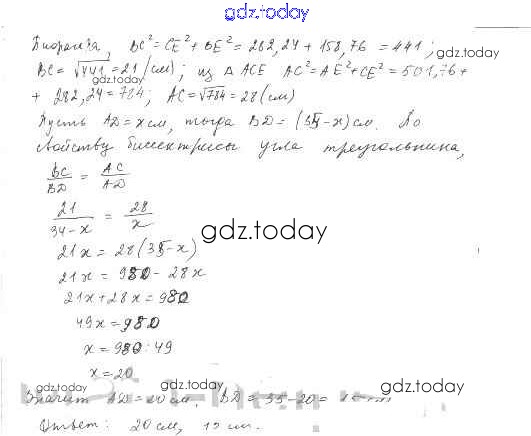 gdz.today
Пифагора, BC² = CE² + BE² = 282,24 + 158,76 = 441;
gdz.today
BC = √441 = 21 (см); из △ ACE AC² = AE² + CE² = 501,76 +
gdz.today
+ 282,24 = 784; AC = √784 = 28 (см)
Пусть AD = x см, тогда BD = (35 - x) см. По
свойству биссектрисы угла треугольника,
BC/BD = AC/AD
21/34-x = 28/x
gdz.today
21x = 28(35 - x)
21x = 980 - 28x
21x + 28x = 980
49x = 980
x = 980 : 49
x = 20
gdz.today gdz.today gdz.today
Значит AD = 20 см. BD = 35 - 20 = 15 см
Ответ: 20 см, 15 см.